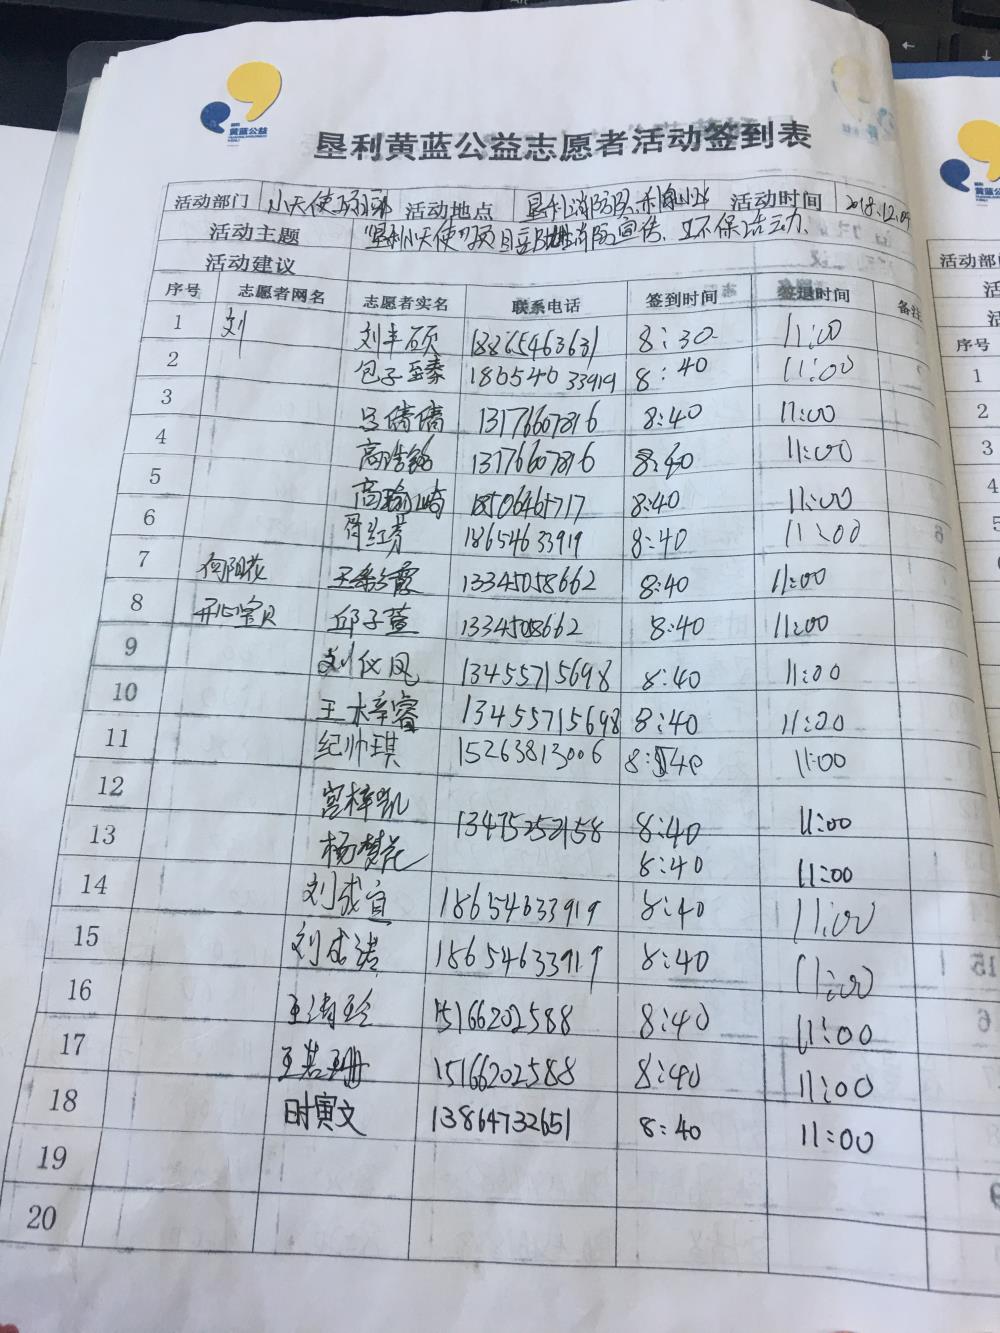 黄蓝公益
垦利黄蓝公益志愿者活动签到表
活动部门 小天使项目部 活动地点 垦利消防队 活动时间 2018.12.09
活动主题 "垦利小天使"项目 消防宣传、环保活动、
活动建议
序号 志愿者网名 志愿者实名 联系电话 签到时间 签退时间 备注
1 刘 刘丰硕 18865463631 8:30 11:00
2 包子 18654633919 8:40 11:00
3 倩倩 13176607816 8:40 11:00
4 高浩铭 13176607816 8:40 11:00
5 高 18506465717 8:40 11:00
6 18654633919 8:40 11:00
7 向阳花 王 霞 13345058662 8:40 11:00
8 开心宝贝 邱子萱 1334508662 8:40 11:00
9 刘仪凤 13455715698 8:40 11:00
10 王梓睿 13455715698 8:40 11:00
11 纪帅琪 15263813006 8:40 11:00
12 宫梓凯 13475252158 8:40 11:00
13 杨梦花 8:40 11:00
14 刘成宜 18654633919 8:40 11:00
15 刘成 18654633919 8:40 11:00
16 王 玲 15166202588 8:40 11:00
17 王若珊 15166202588 8:40 11:00
18 时寅文 13864732651 8:40 11:00
19
20
黄蓝公益
活动部
活
活
序号
1
2
3
4
5